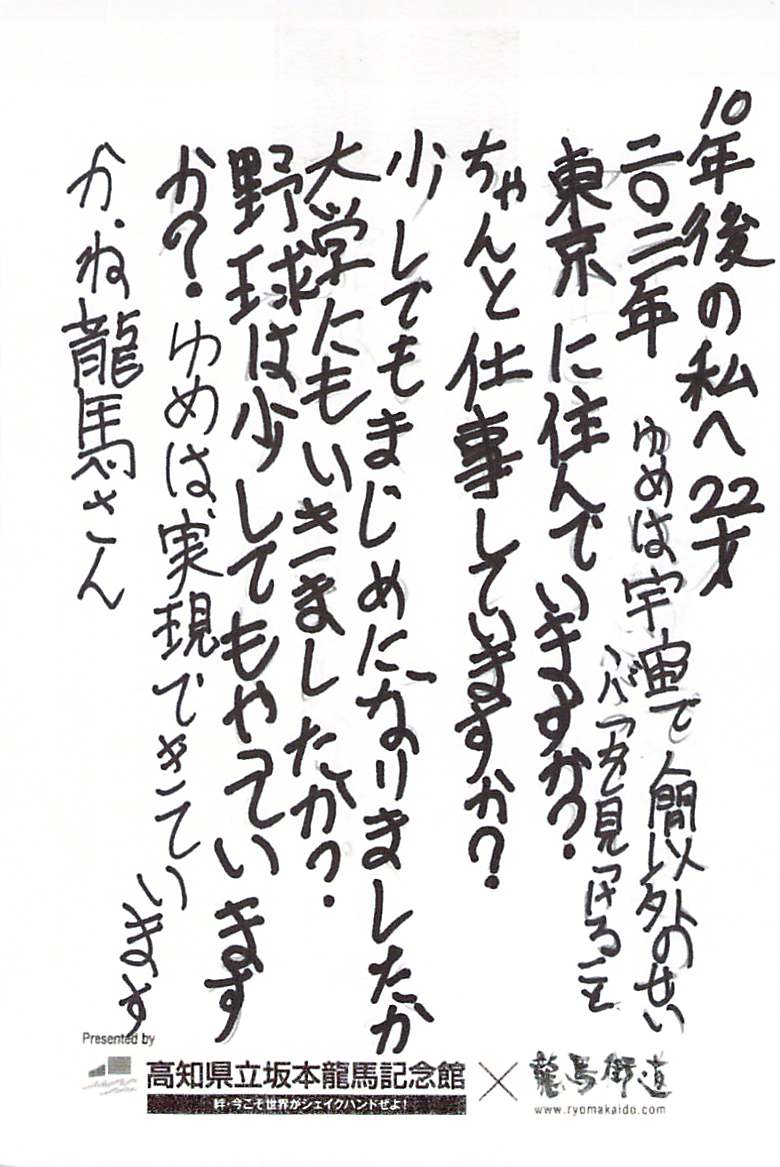 10年後の私へ 22才
二〇二二年
ゆめは宇宙で人間以外のせい
ぶつを見つけること
東京に住んでいますか?
ちゃんと仕事していますか?
少しでもまじめになりましたか
大学にもいきましたか?
野球は少してもやっています
か?
ゆめは、実現できています
かね龍馬さん
Presented by
高知県立坂本龍馬記念館×龍馬街道
絆・今こそ世界がシェイクハンドぜよ!
www.ryomakaido.com